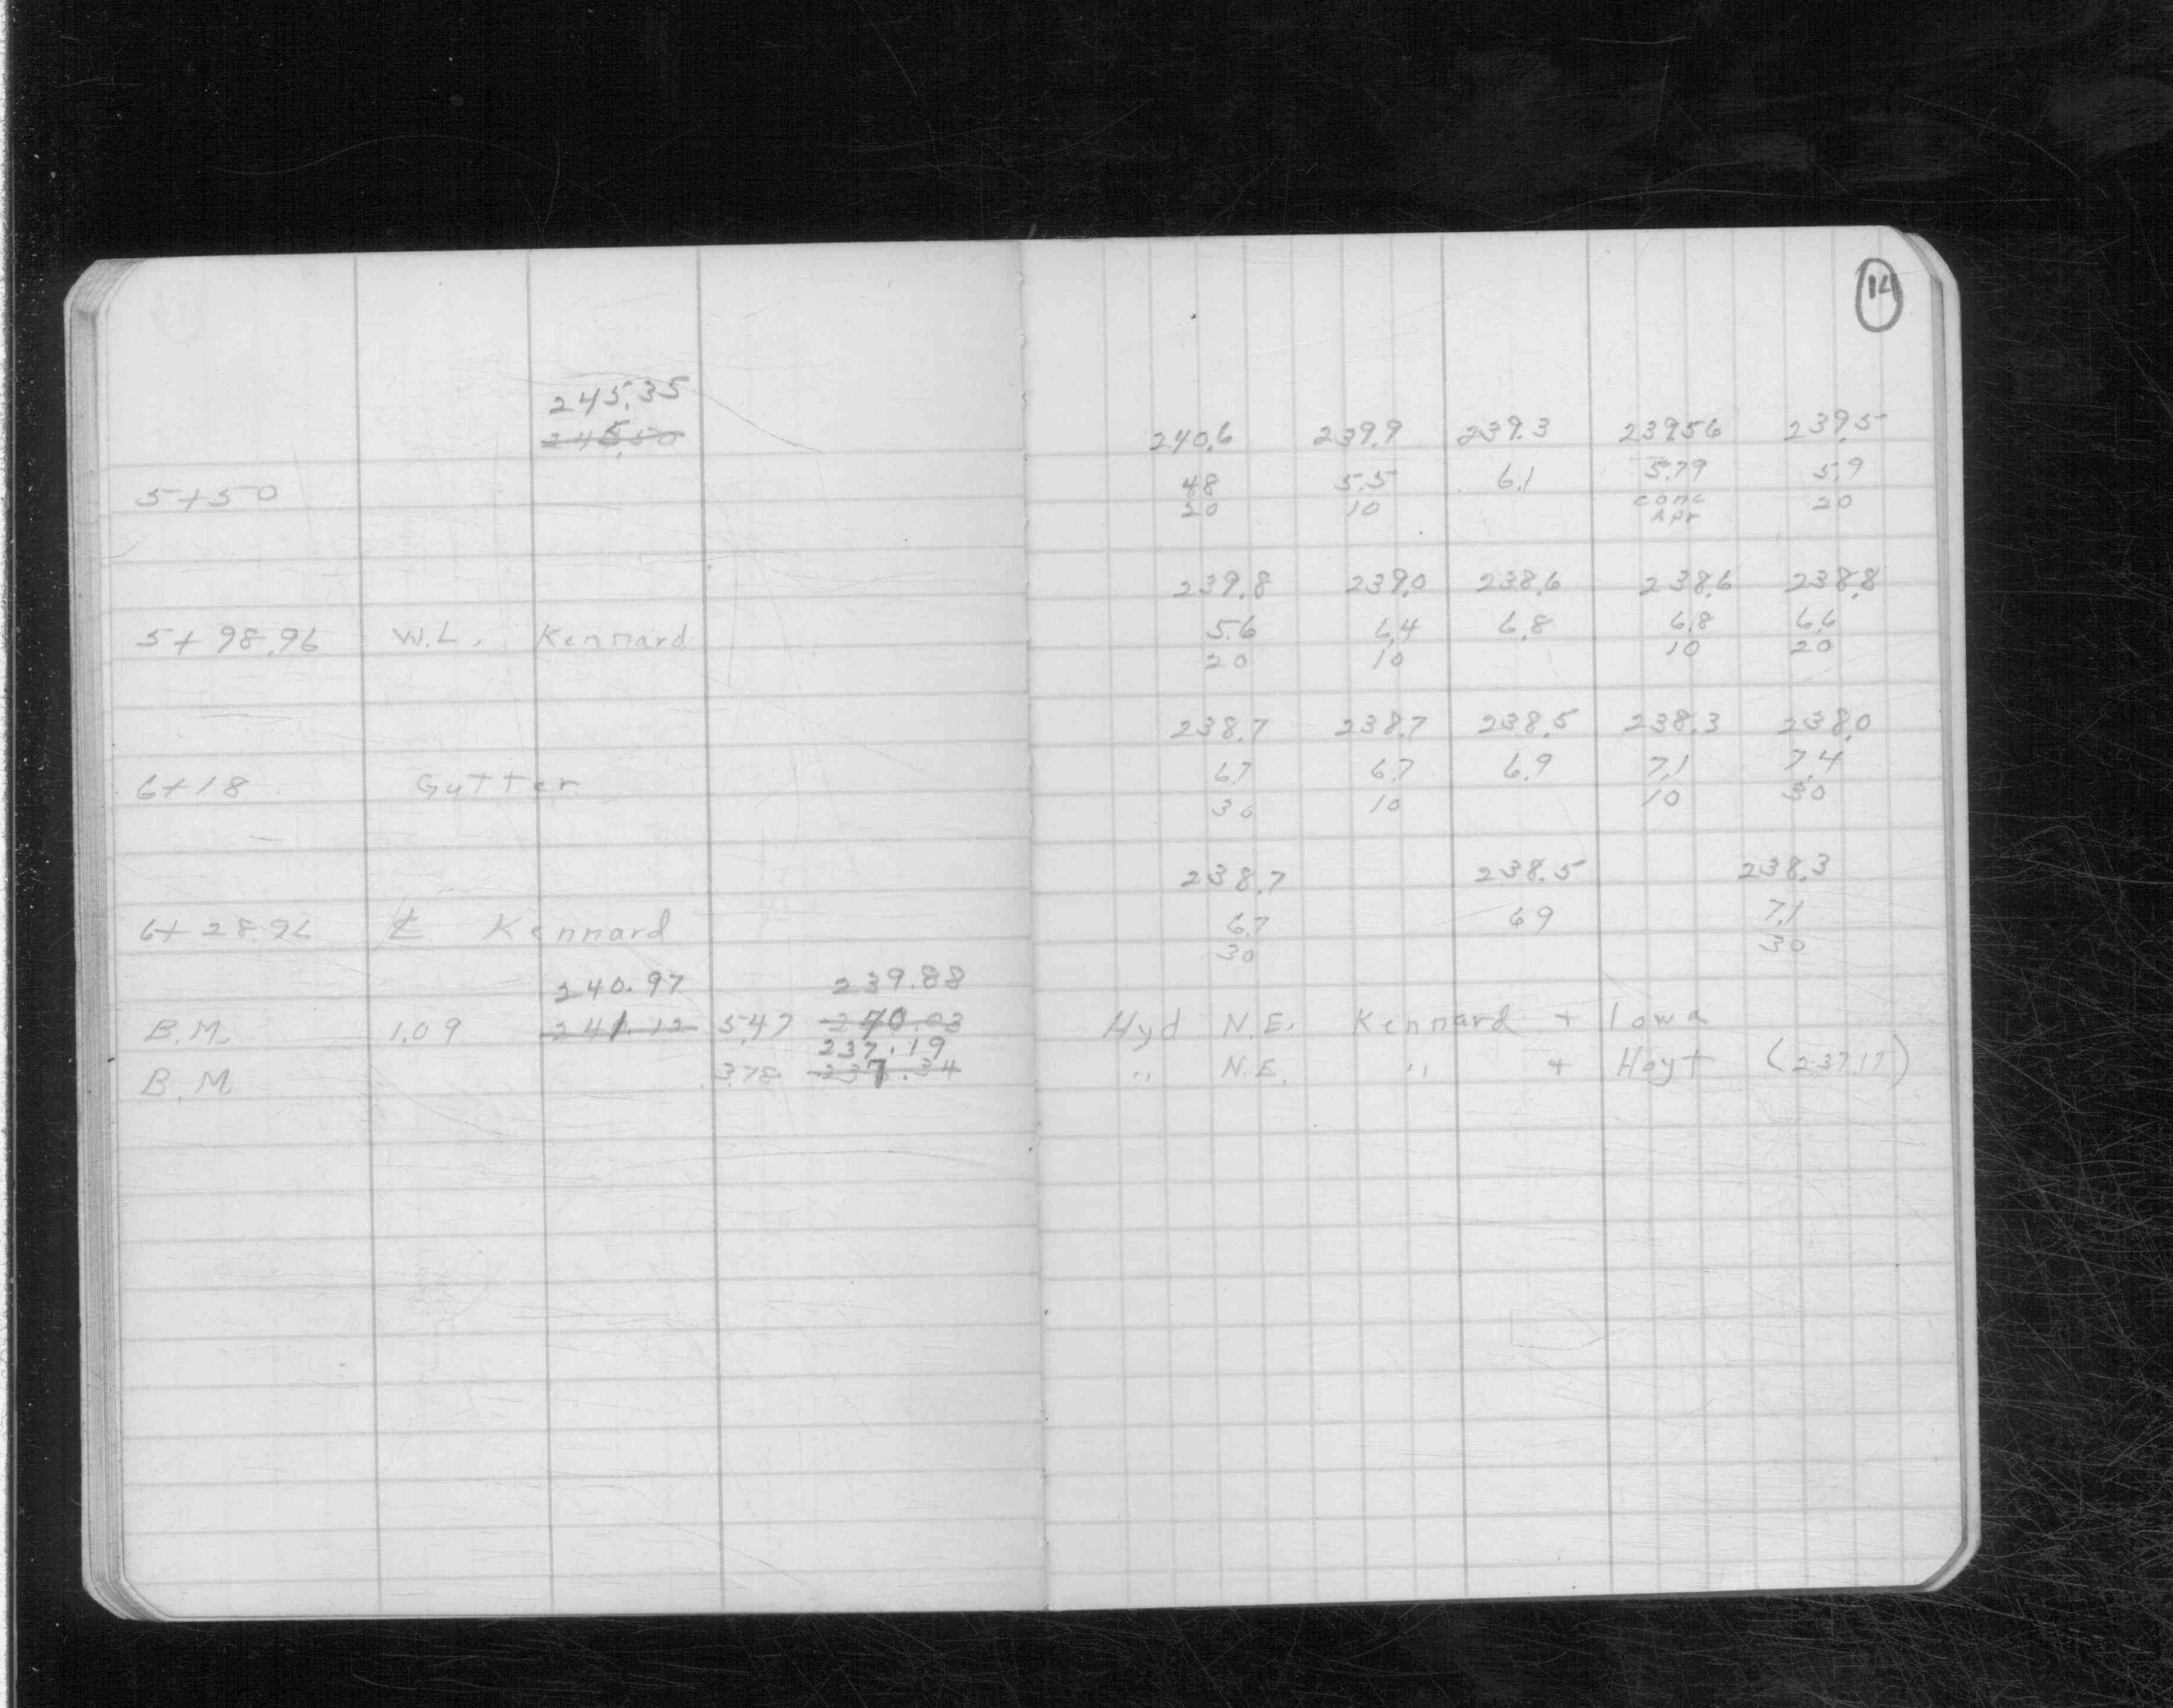 14
245.35
245.50
240.6 239.9 239.3 239.56 239.5
5+50 4.8 5.5 6.1 5.79 5.9
20 10 conc 20
Apr
239.8 239.0 238.6 238.6 238.8
5+98.96 W.L. Kennard 5.6 6.4 6.8 6.8 6.6
20 10 10 20
238.7 238.7 238.5 238.3 238.0
6+18 Gutter 6.7 6.7 6.9 7.1 7.4
30 10 10 30
238.7 238.5 238.3
6+28.96 ℄ Kennard 6.7 6.9 7.1
30 30
240.97 239.88
B.M. 1.09 241.12 5.47 240.03 Hyd N.E. Kennard + Iowa
237.19
B.M. 3.78 237.34 " N.E. " + Hoyt (237.17)